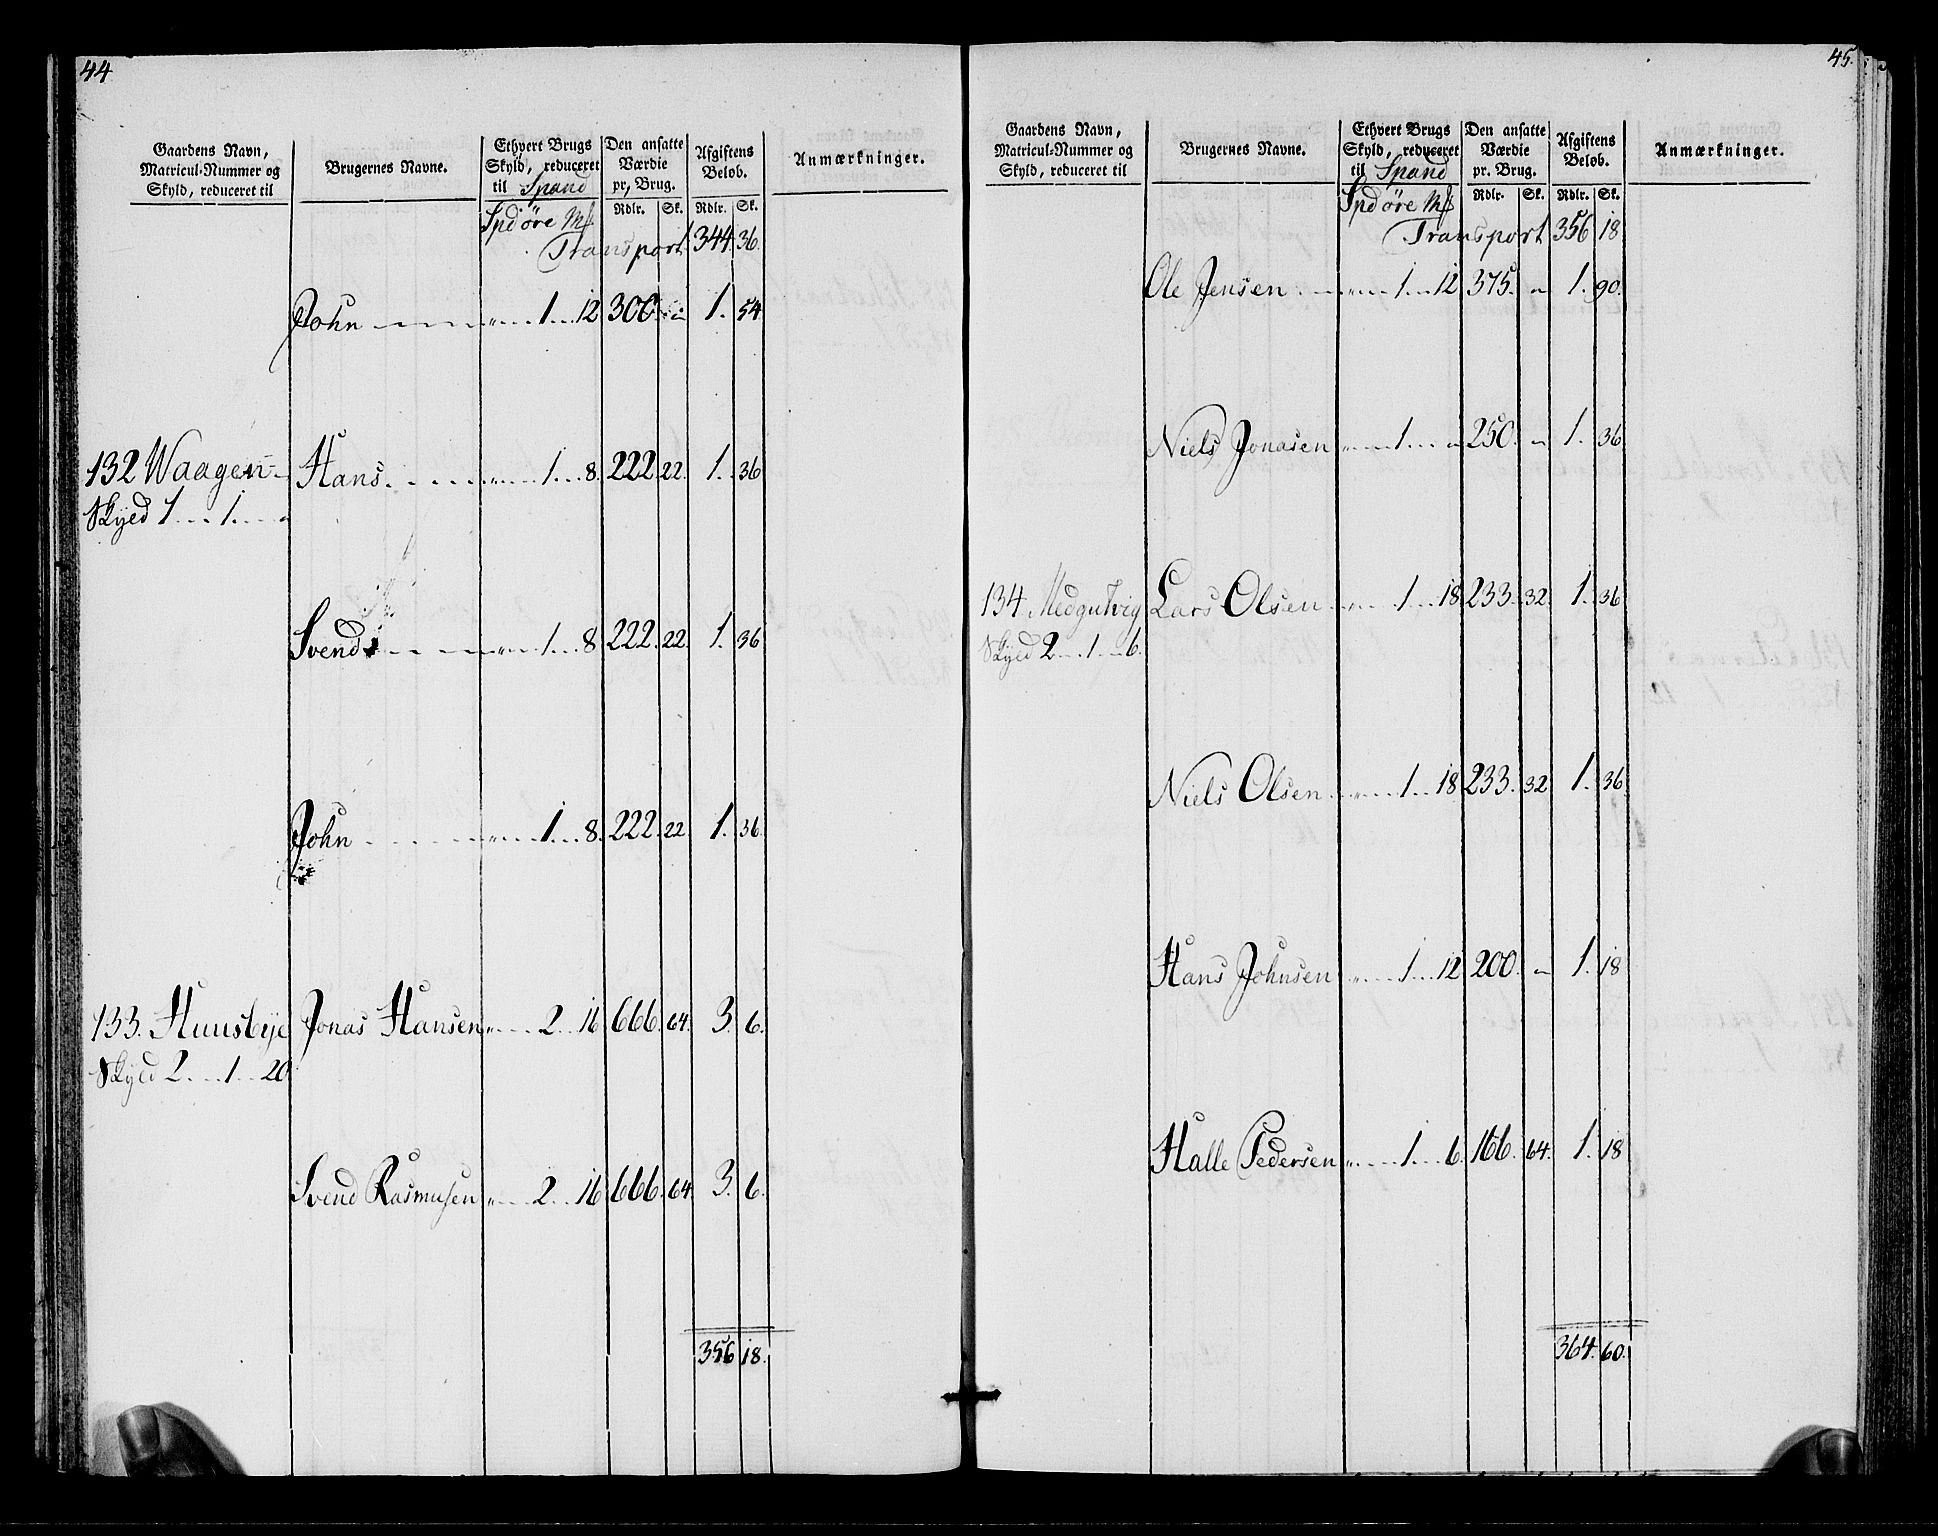 44
Gaardens Navn, Matricul-Nummer og Skyld, reduceret til
Brugernes Navne.
Ethvert Brugs Skyld, reduceret til Spand
Den ansatte Værdie pr. Brug.
Afgiftens Beløb.
Anmærkninger.
Spd öre Mk
Rdlr. Sk. Rdlr. Sk.
Transport 344. 36.
John 1 12 300. 1. 54.
132 Waagen Hans 1 8. 222. 22. 1. 36
Skyld 1 1
Svend 1 8 222. 22. 1. 36
John 1 8. 222. 22. 1. 36.
133. Huusbye Jonas Hansen 2 16 666. 64. 3. 6.
Skyld 2 1 20
Svend Rasmusen 2 16 666. 64. 3. 6.
356 18.
45.
Gaardens Navn, Matricul-Nummer og Skyld, reduceret til
Brugernes Navne.
Ethvert Brugs Skyld, reduceret til Spand
Den ansatte Værdie pr. Brug.
Afgiftens Beløb.
Anmærkninger.
Spd öre Mk
Rdlr. Sk. Rdlr. Sk.
Transport 356 18
Ole Jensen 1 12 375. 1. 90.
Niels Jonasen 1 250. 1. 36
134 Lars Olsen 1 18 233. 32. 1. 36
Skyld 2 1 6.
Niels Olsen 1 18 233. 32 1. 36.
Hans Johnsen 1 12 200. 1. 18
Halle Pedersen 1 6. 166. 64. 1. 18
364. 60.